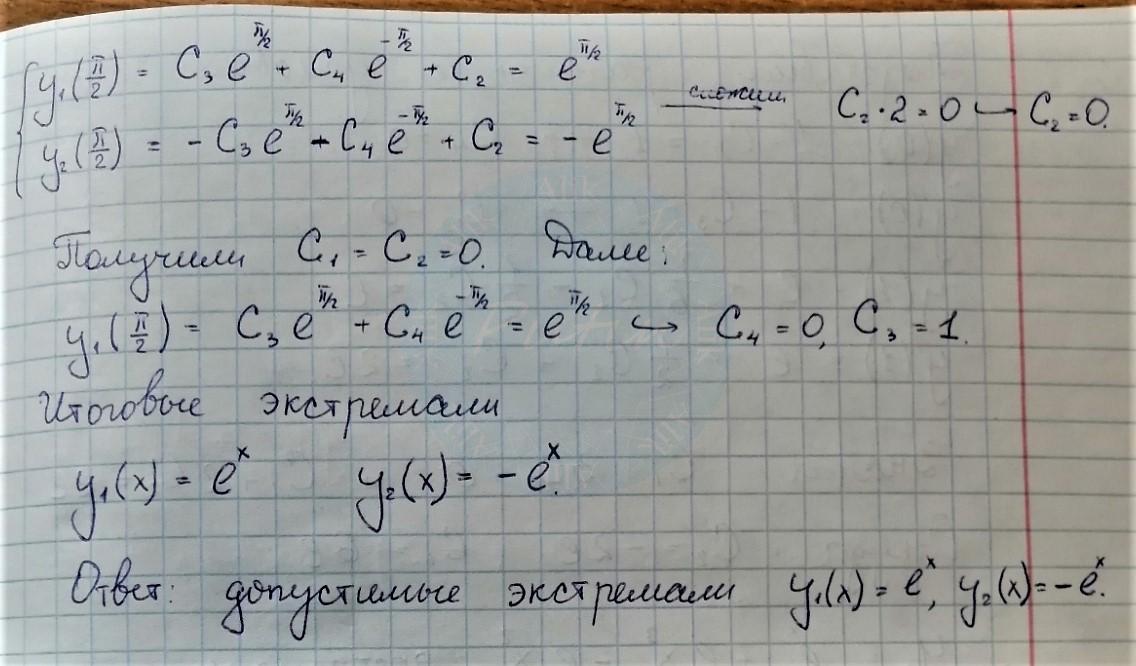 y₁(π/2) = C₃ e^{π/2} + C₄ e^{-π/2} + C₂ = e^{π/2}
y₂(π/2) = - C₃ e^{π/2} - C₄ e^{-π/2} + C₂ = - e^{π/2}
сложим C₂·2=0 → C₂=0.
Получили C₁ = C₂ =0. Далее:
y₁(π/2) = C₃ e^{π/2} + C₄ e^{-π/2} = e^{π/2} → C₄ = 0, C₃ = 1.
Итоговые экстремали
y₁(x) = e^x y₂(x) = - e^x.
Ответ: допустимые экстремали y₁(x) = e^x, y₂(x)= - e^x.